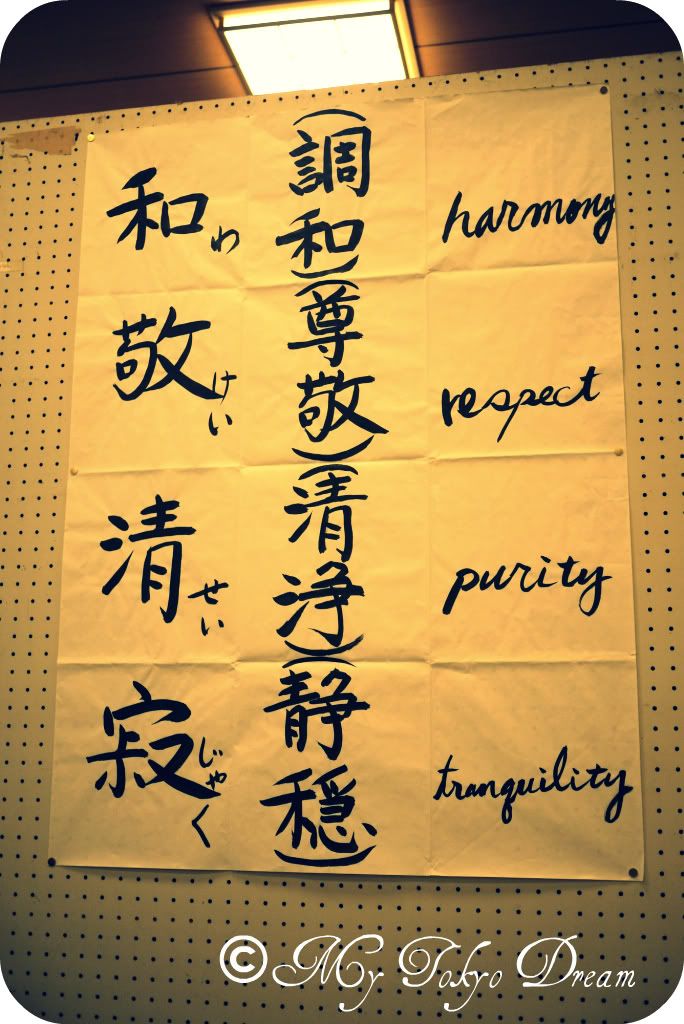 和 わ (調和) harmony
敬 けい (尊敬) respect
清 せい (清浄) purity
寂 じゃく (静穏) tranquility
© My Tokyo Dream